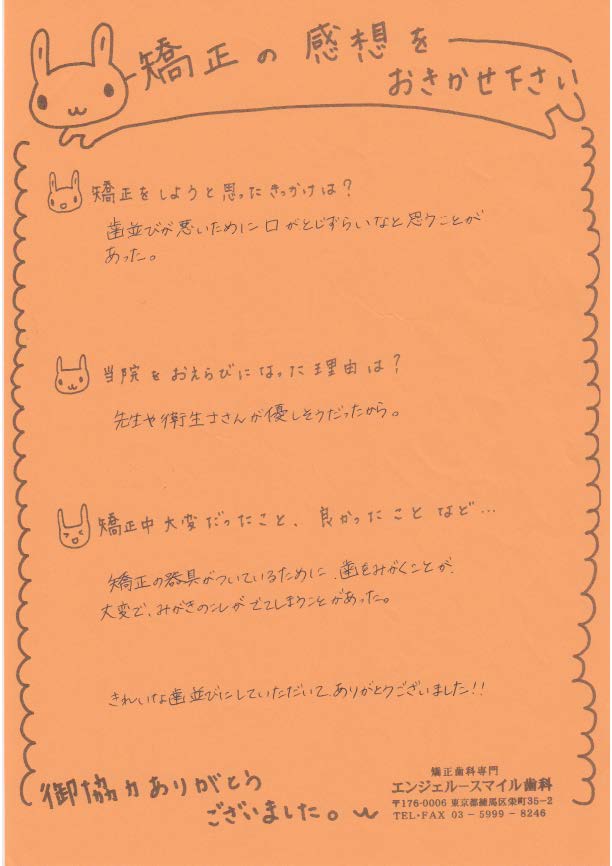 矯正の感想を
おきかせ下さい
矯正をしようと思ったきっかけは?
歯並びが悪いために口がとじずらいなと思うことが
あった。
当院をおえらびになった理由は?
先生や衛生士さんが優しそうだったから。
矯正中大変だったこと、良かったことなど…
矯正の器具がついているために、歯をみがくことが、
大変で、みがきのこしがでてしまうことがあった。
きれいな歯並びにしていただいて、ありがとうございました!!
御協力ありがとう
ございました。
矯正歯科専門
エンジェルースマイル歯科
〒176-0006 東京都練馬区栄町35-2
TEL・FAX 03-5999-8246